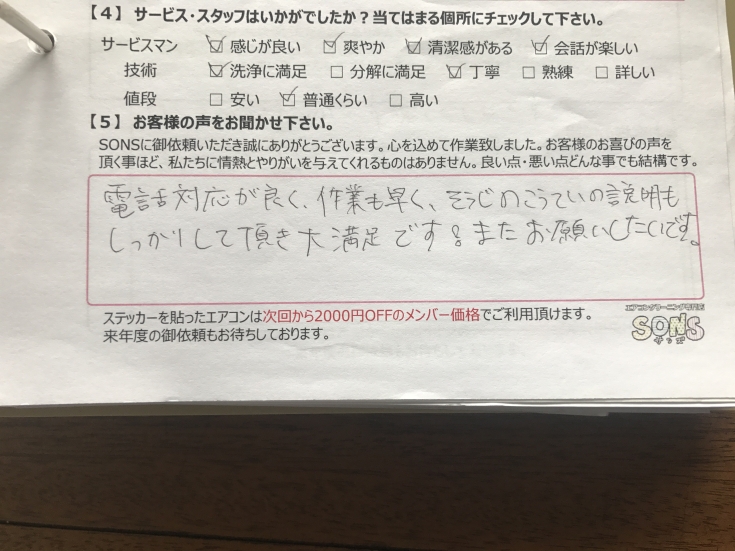 【4】 サービス・スタッフはいかがでしたか？当てはまる個所にチェックして下さい。
サービスマン ☑ 感じが良い ☑ 爽やか ☑ 清潔感がある ☑ 会話が楽しい
技術 ☑ 洗浄に満足 □ 分解に満足 ☑ 丁寧 □ 熟練 □ 詳しい
値段 □ 安い ☑ 普通くらい □ 高い
【5】 お客様の声をお聞かせ下さい。
SONSに御依頼いただき誠にありがとうございます。心を込めて作業致しました。お客様のお喜びの声を
頂く事ほど、私たちに情熱とやりがいを与えてくれるものはありません。良い点・悪い点どんな事でも結構です。
電話対応が良く、作業も早く、そうじのこうていの説明も
しっかりして頂き大満足です!またお願いしたいです。
ステッカーを貼ったエアコンは次回から2000円OFFのメンバー価格でご利用頂けます。
来年度の御依頼もお待ちしております。
エアコンクリーニング専門店
SONS
サンズ